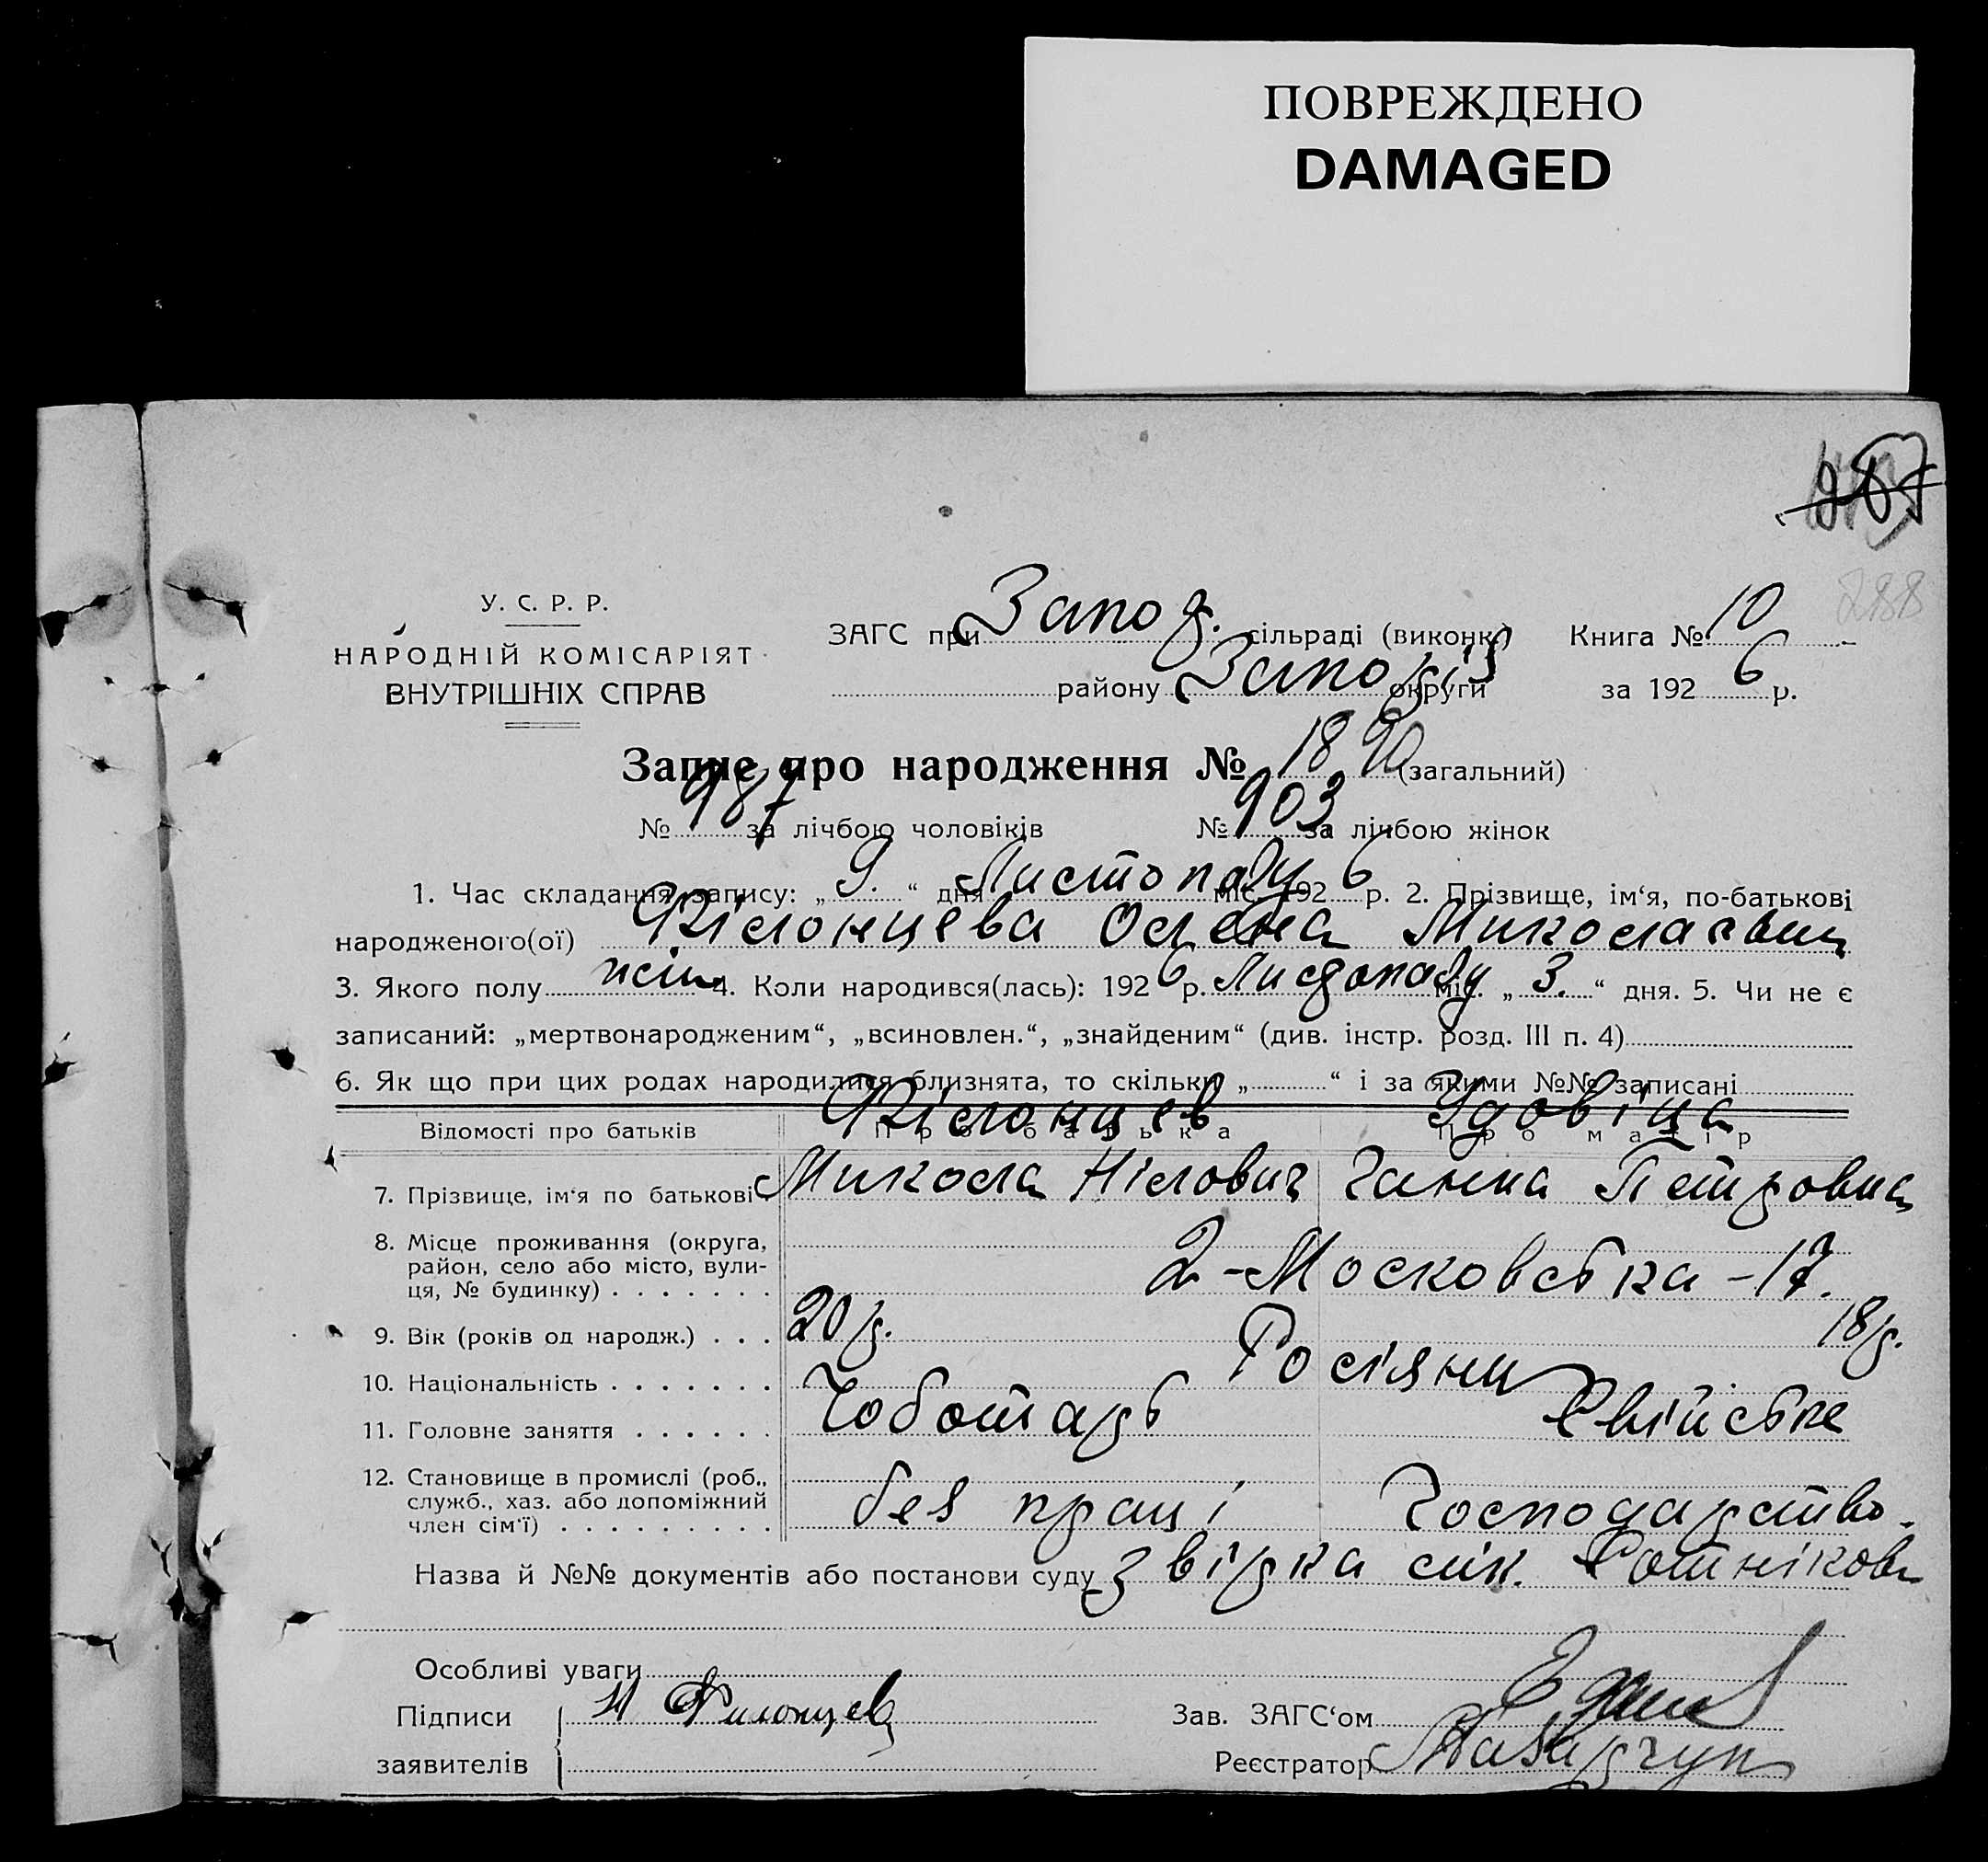 ПОВРЕЖДЕНО
DAMAGED
288
У. С. Р. Р.
НАРОДНІЙ КОМІСАРІЯТ
ВНУТРІШНІХ СПРАВ
ЗАГС при Запор. сільраді (виконк.) Книга № 10
району Запоріз округи за 192 6 р.
Запис про народження № 1890 (загальний)
№ 987 за лічбою чоловіків № 903 за лічбою жінок
1. Час складання запису: „ 9. “ дня Листопаду міс. 192 6 р. 2. Прізвище, ім‘я, по-батькові
народженого(ої) Філонцева Олена Миколаевна
3. Якого полу жін 4. Коли народився(лась): 192 6 р. Листопаду міс. „ 3. “ дня. 5. Чи не є
записаний: „мертвонародженим“, „всиновлен.“, „знайденим“ (див. інстр. розд. III п. 4)
6. Як що при цих родах народилися близнята, то скільки „ “ і за якими №№ записані
Відомості про батьків Про батька Про матір
Філонцев Удовіца
7. Прізвище, ім‘я по батькові Микола Нілович Ганна Петровна
8. Місце проживання (округа,
район, село або місто, вули-
ця, № будинку) . . . . . . . 2-Московська-17.
9. Вік (років од народж.) . . . 20 р. 18 р.
10. Національність . . . . . . . Росіяни
11. Головне заняття . . . . . . Чоботарь Свійське
12. Становище в промислі (роб.,
служб., хаз. або допоміжний
член сім‘ї) . . . . . . . . . без праці Господарство.
Назва й №№ документів або постанови суду звірка Сотнікова
Особливі уваги
Підписи Н Филонцев Зав. ЗАГС‘ом
заявителів Реєстратор